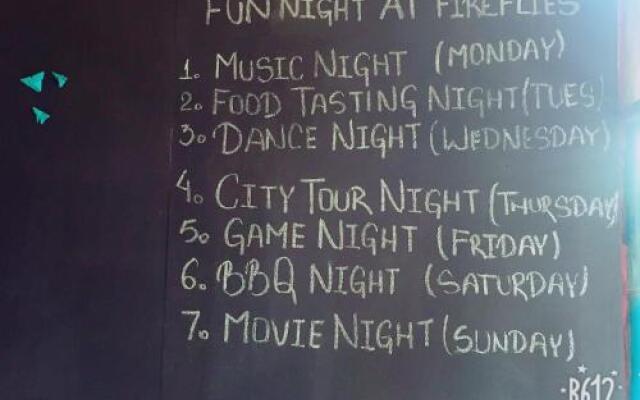 FUN NIGHT AT FIREFLIES
1. MUSIC NIGHT (MONDAY)
2. FOOD TASTING NIGHT (TUES)
3. DANCE NIGHT (WEDNESDAY)
4. CITY TOUR NIGHT (THURSDAY)
5. GAME NIGHT (FRIDAY)
6. BBQ NIGHT (SATURDAY)
7. MOVIE NIGHT (SUNDAY)
B612